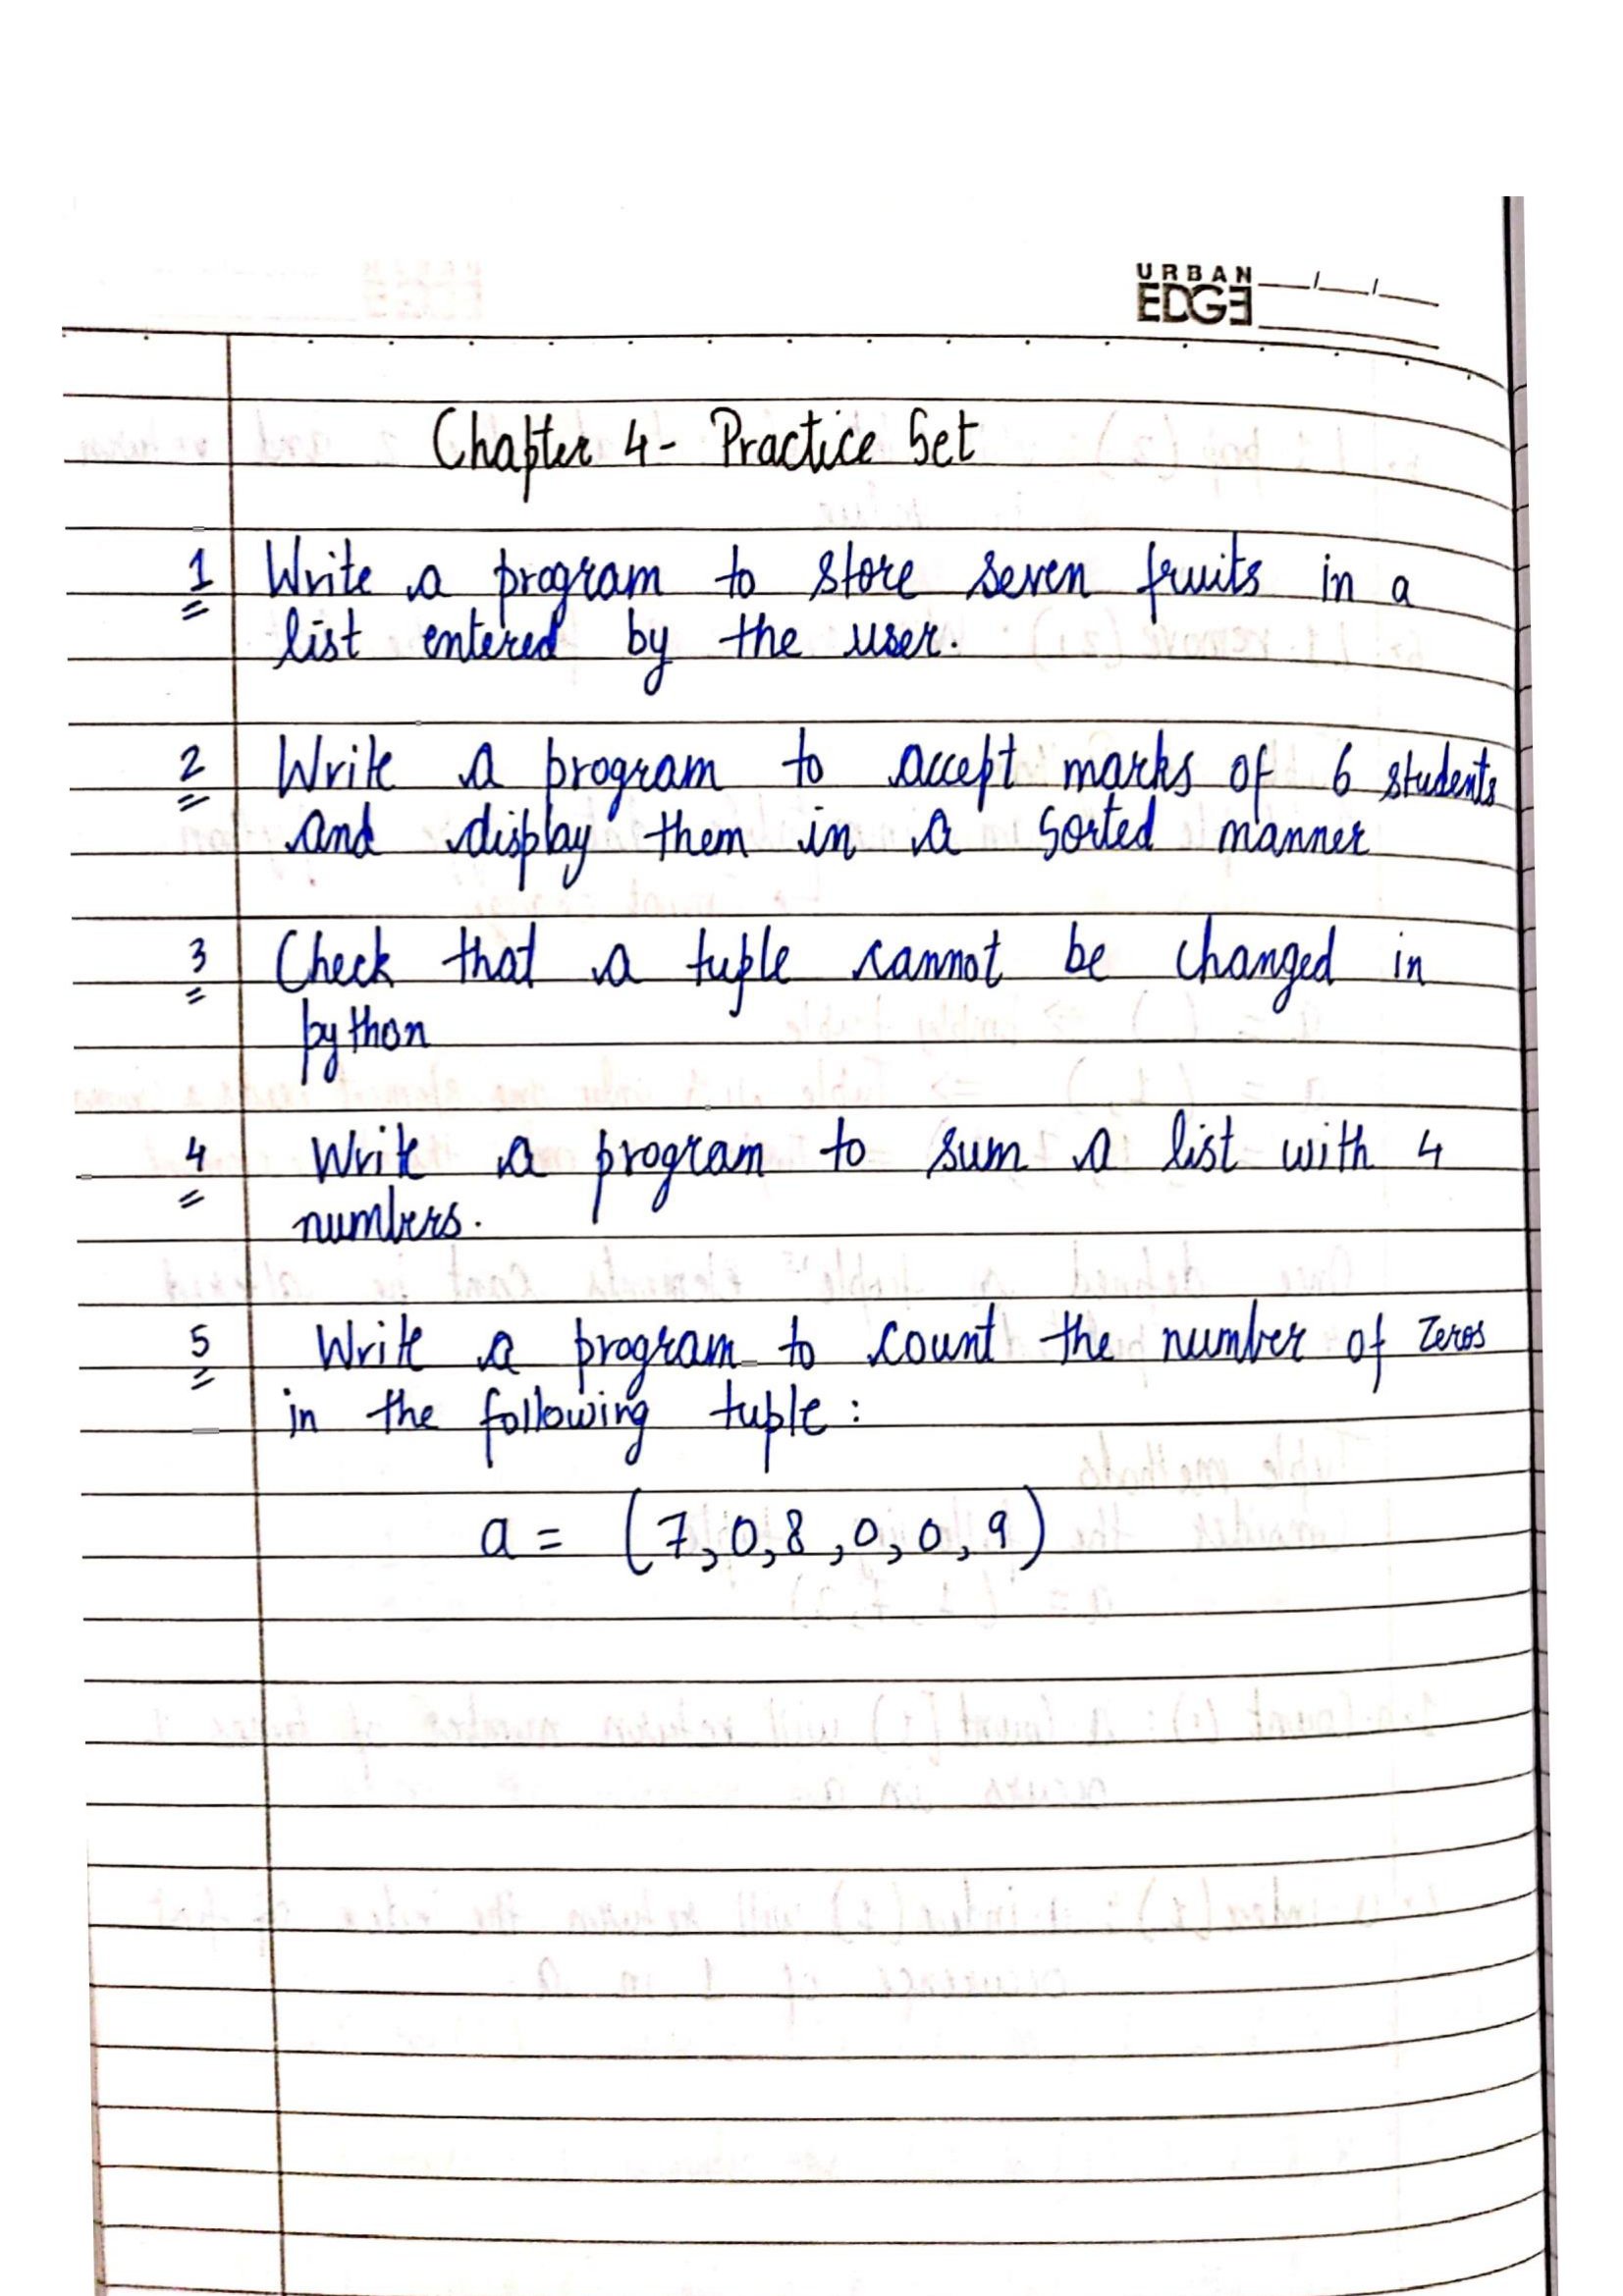 URBAN
EDGE
Chapter 4 - Practice Set
1 Write a program to store seven fruits in a
list entered by the user.
2 Write a program to accept marks of 6 students
and display them in a sorted manner
3 Check that a tuple cannot be changed in
python
4 Write a program to sum a list with 4
numbers.
5 Write a program to count the number of zeros
in the following tuple:
a = (7,0,8,0,0,9)